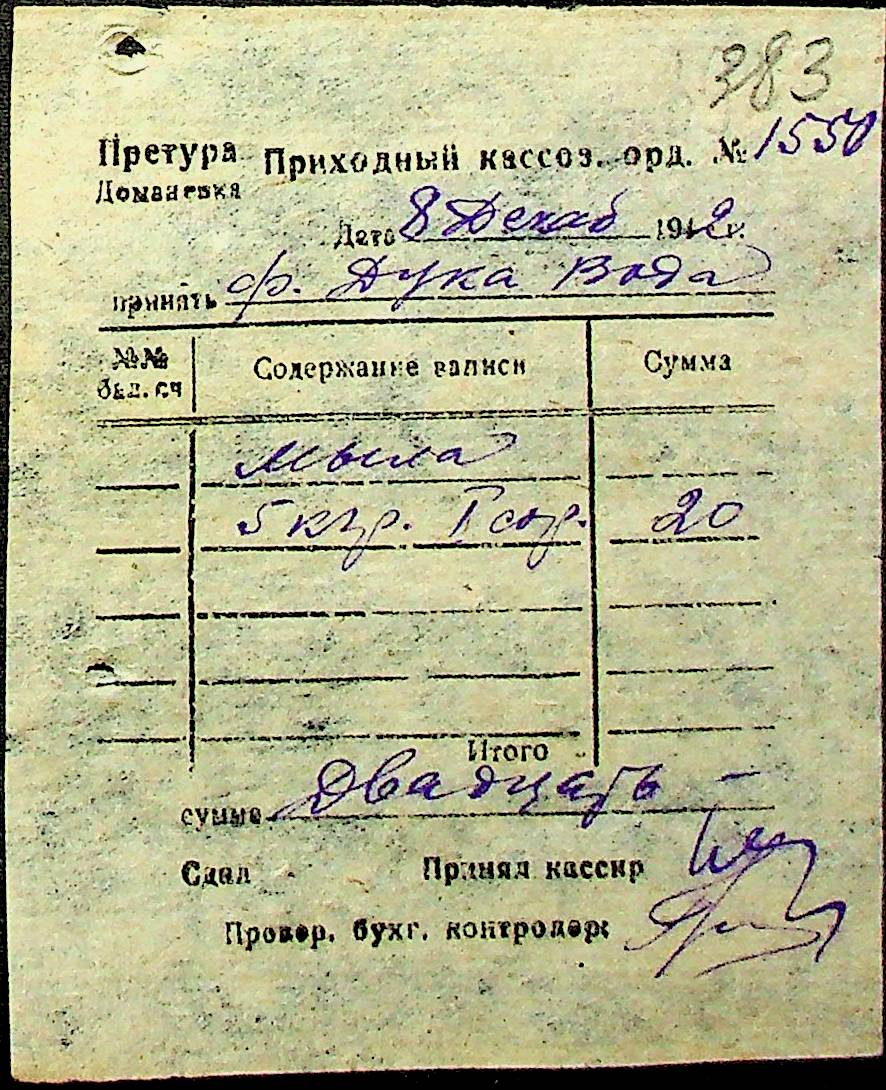 383
Претура Приходный кассов. орд. № 1550
Доманевка
Дата 8 Декаб 1942 г.
принять ф. Дука Вода
№№ бал. сч Содержание записи Сумма
мыла
5 кгр. I сор. 20
Итого
сумма Двадцать —
Сдал Принял кассир
Провер. бухг. контролер: